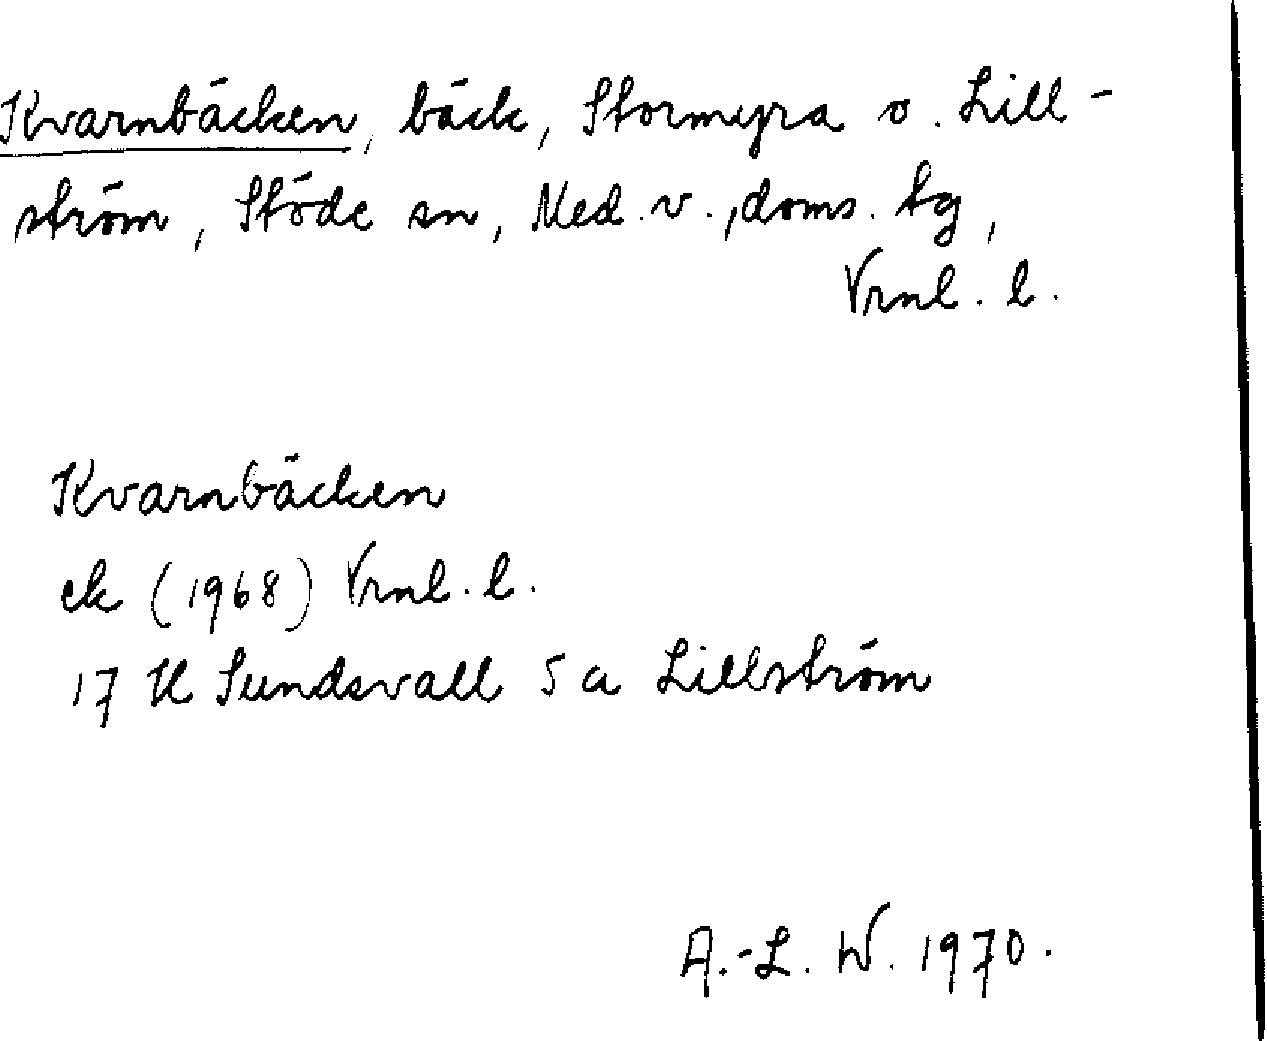 Kvarnbäcken, bäck, Stormyra o. Lill-
ström, Stöde sn, Med. v., doms. tg,
Vrnl. l.
Kvarnbäcken
ek (1968) Vrnl. l.
17 H Sundsvall 5 a Lillström
A.-L. W. 1970.